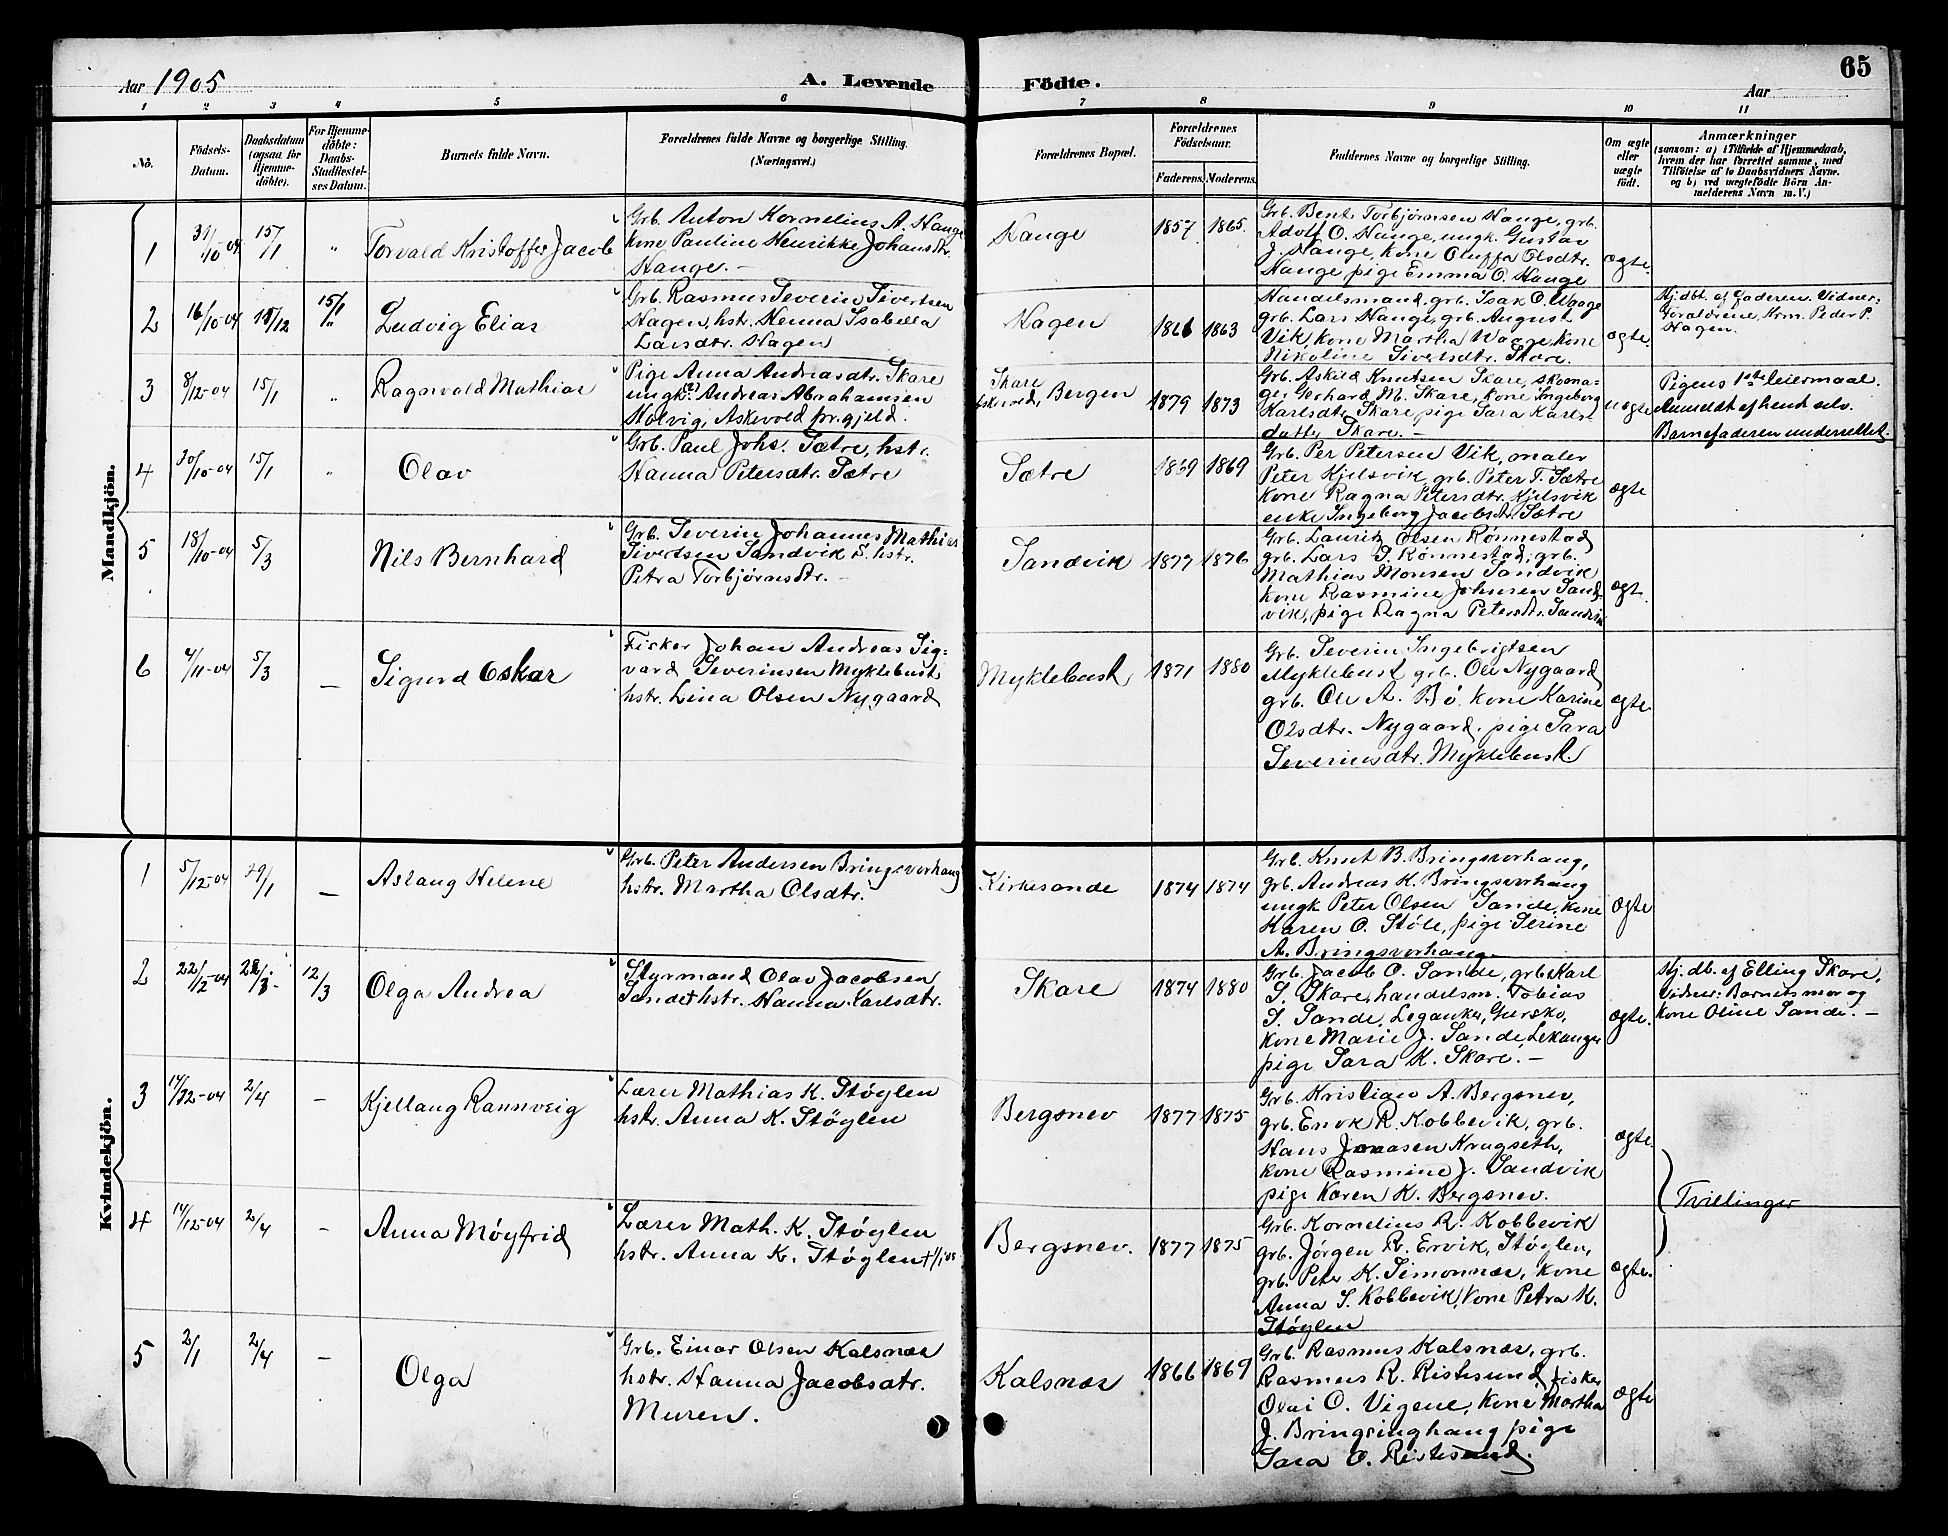 Aar 1905
A. Levende Födte.
Aar
65
1 2 3 4 5 6 7 8 9 10 11
No.
Födsels-
Datum.
Daabsdatum
(ogsaa for
Hjemme-
döbte).
For Hjemme-
döbte:
Daabs-
Stadfæstel-
ses Datum.
Barnets fulde Navn.
Forældrenes fulde Navne og borgerlige Stilling.
(Næringsvei.)
Forældrenes Bopæl.
Forældrenes
Födselsaar.
Faderens.
Moderens.
Faddernes Navne og borgerlige Stilling.
Om ægte
eller
uægte
födt.
Anmærkninger
(saasom: a) i Tilfælde af Hjemmedaab,
hvem der har forrettet samme, med
Tilföielse af to Daabsvidners Navne.
og b) ved uægtefödte Börn An-
melderens Navn m. V.)
Mandkjön.
1
31/10 04
15/1
"
Torvald Kristoffer Jacob
Grb. Anton Kornelius A. Hauge
kone Pauline Henrikke Johansdtr.
Hauge. —
Hauge
1857
1865
Grb. Bent Torbjørnsen Hauge, grb.
Adolf O. Hauge, ungk. Gustav
J. Hauge, kone Oluffa Olsdtr.
Hauge pige Emma O. Hauge
ægte.
2
16/10-04
15/1
Ludvig Elias
Grb. Rasmus Severin Sivertsen
Hagen, hstr. Henna Isabella
Larsdtr. Hagen
Hagen
1863
Handelsmand, grb. Isak O. Waage
grb. Lars Hauge, grb. August
Vik, kone Martha Waage, kone
Nikoline Sivertsdtr. Skare.
ægte.
Hj.dbt. af Faderen. Vidner:
Forældrene, Krm. Peder P.
Hagen.
3
8/12-04
15/1
"
Ragnvald Mathias
Pige Anna Andreasdtr. Skare
ungk. Andreas Abrahamsen
Holvig, Askevold pr.gjeld.
Skare
Askevold, Bergen
1879
1873
Grb. Askild Knutsen Skare, skoma-
ger Gerhard M. Skare, kone Ingeborg
Karlsdtr. Skare, pige Sara Karls-
datter Skare. —
uægte
Pigens 1ste leiermaal.
Anmeldt af hende selv.
Barnefaderen underrettet.
4
30/10-04
15/1
"
Olav
Grb. Paul Johs. Sætre, hstr.
Hanna Petersdtr. Sætre
Sætre
1869
Grb. Per Petersen Vik, maler
Peter Kjelsvik, grb. Peter T. Sætre
kone Ragna Petersdtr. Kjelsvik
enke Ingeborg Jacobsdtr. Sætre
ægte
5
18/10-04
5/3
Nils Bernhard
Grb. Severin Johannes Mathias
Sivertsen Sandvik hstr.
Petra Torbjørnsdtr. —
Sandvik
1877
1876
Grb. Laurits Olsen Rønnestad
grb. Lars S. Rønnestad, grb.
Mathias Monsen Sandvik
kone Rasmine Johnsen Sand-
vik, pige Ragna Petersdtr. Sandvik
ægte.
6
4/11-04
5/3
—
Sigurd Oskar
Fisker Johan Andreas Sig-
vard Severinsen Myklebust
hstr. Lina Olsen Nygaard
Myklebust
1871
1880
Grb. Severin Ingebrigtsen
Myklebust grb. Ole Nygaard
grb. Ole A. Bø. kone Karine
Olsdtr. Nygaard, pige Sara
Severinsdtr. Myklebust.
ægte.
Kvindekjön.
1
5/12-04
29/1
—
Aslaug Helene
Grb. Peter Andersen Bringsvorhaug
hstr. Martha Olsdtr.
Kirkesande
1874
1874
Grb. Knut B. Bringsvorhaug,
grb. Andreas K. Bringsvorhaug
ungk Peter Olsen Sande, kone
Karen O. Støle, pige Serine
A. Bringsvorhaug
ægte
2
22/12-04
12/3
Olga Andrea
Styrmand Olav Jacobsen
Sande hstr. Hanna Karlsdtr.
Skare
1874
1880
Grb. Jacob O. Sande, grb. Karl
S. Skare, handelsm. Tobias
S. Sande, Leganker, Gursko,
kone Marie J. Sande, Lekanger
pige Sara K. Skare. —
ægte.
Hj.db. af Elling Skare,
Vidner: Barnets mor og
kone Oline Sande. —
3
2/4
—
Kjellaug Rannveig
Lærer Mathias K. Støylen
hstr. Anna K. Støylen
Bergsnev
1877
1875
Grb. Kristian A. Bergsnev,
grb. Enok R. Kobbevik, grb.
Hans Jonasen Krugseth,
kone Rasmine J. Sandvik
pige Karen K. Bergsnev.
ægte.
Tvillinger
4
14/12-04
2/4
—
Anna Møyfrid
Lærer Math. K. Støylen
hstr. Anna K. Støylen
Bergsnev.
1877
1875
Grb. Kornelius R. Kobbevik
grb. Jørgen R. Ervik, Støylen,
grb. Peter K. Simonnæs, kone
Anna S. Kobbevik, kone Petra K.
Støylen
ægte.
5
2/1
2/4
—
Olga
Grb. Einar Olsen Kalsnæs
hstr. Hanna Jacobsdtr.
Muren.
Kalsnæs
1866
1869
Grb. Rasmus Kalsnæs, grb.
Rasmus R. Ristesund fisker
Olai O. Vigene, kone Martha
J. Bringsinghaug pige
Sara O. Ristesund.
ægte